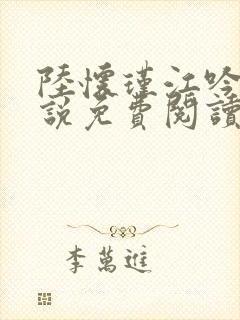 陸懷瑾江吟
說免費閱讀
李萬進